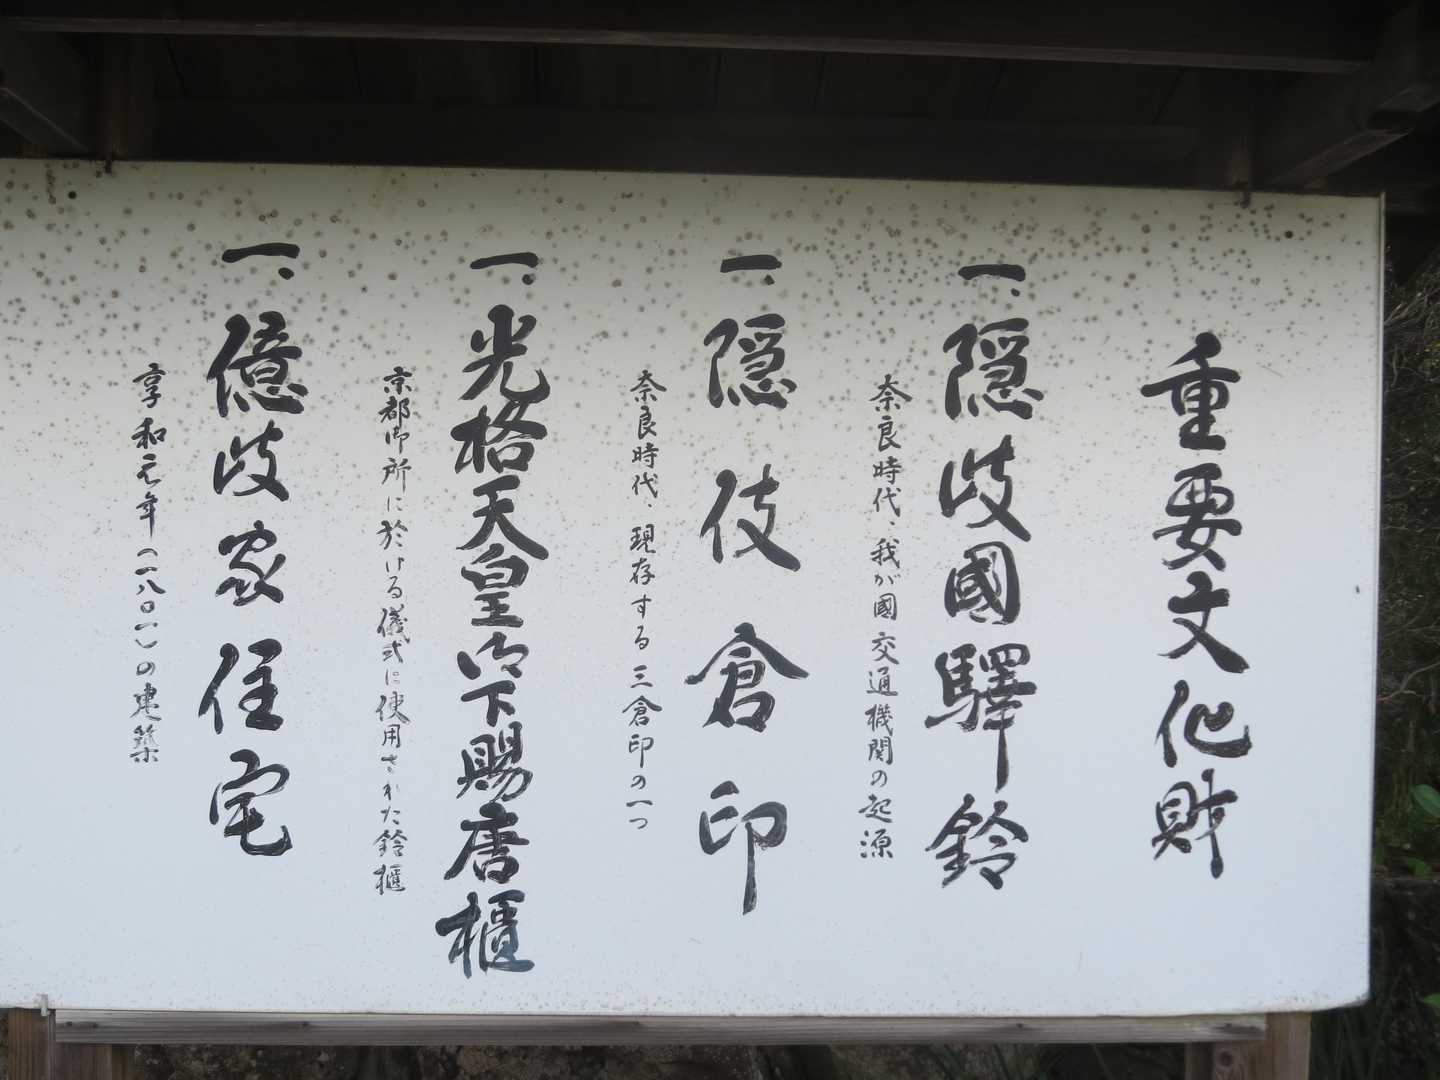 重要文化財
一、隠岐國驛鈴
奈良時代、我が國交通機関の起源
一、隠伎倉印
奈良時代、現存する三倉印の一つ
一、光格天皇御下賜唐櫃
京都御所に於ける儀式に使用された鈴櫃
一、億岐家住宅
享和元年(一八〇一)の建築